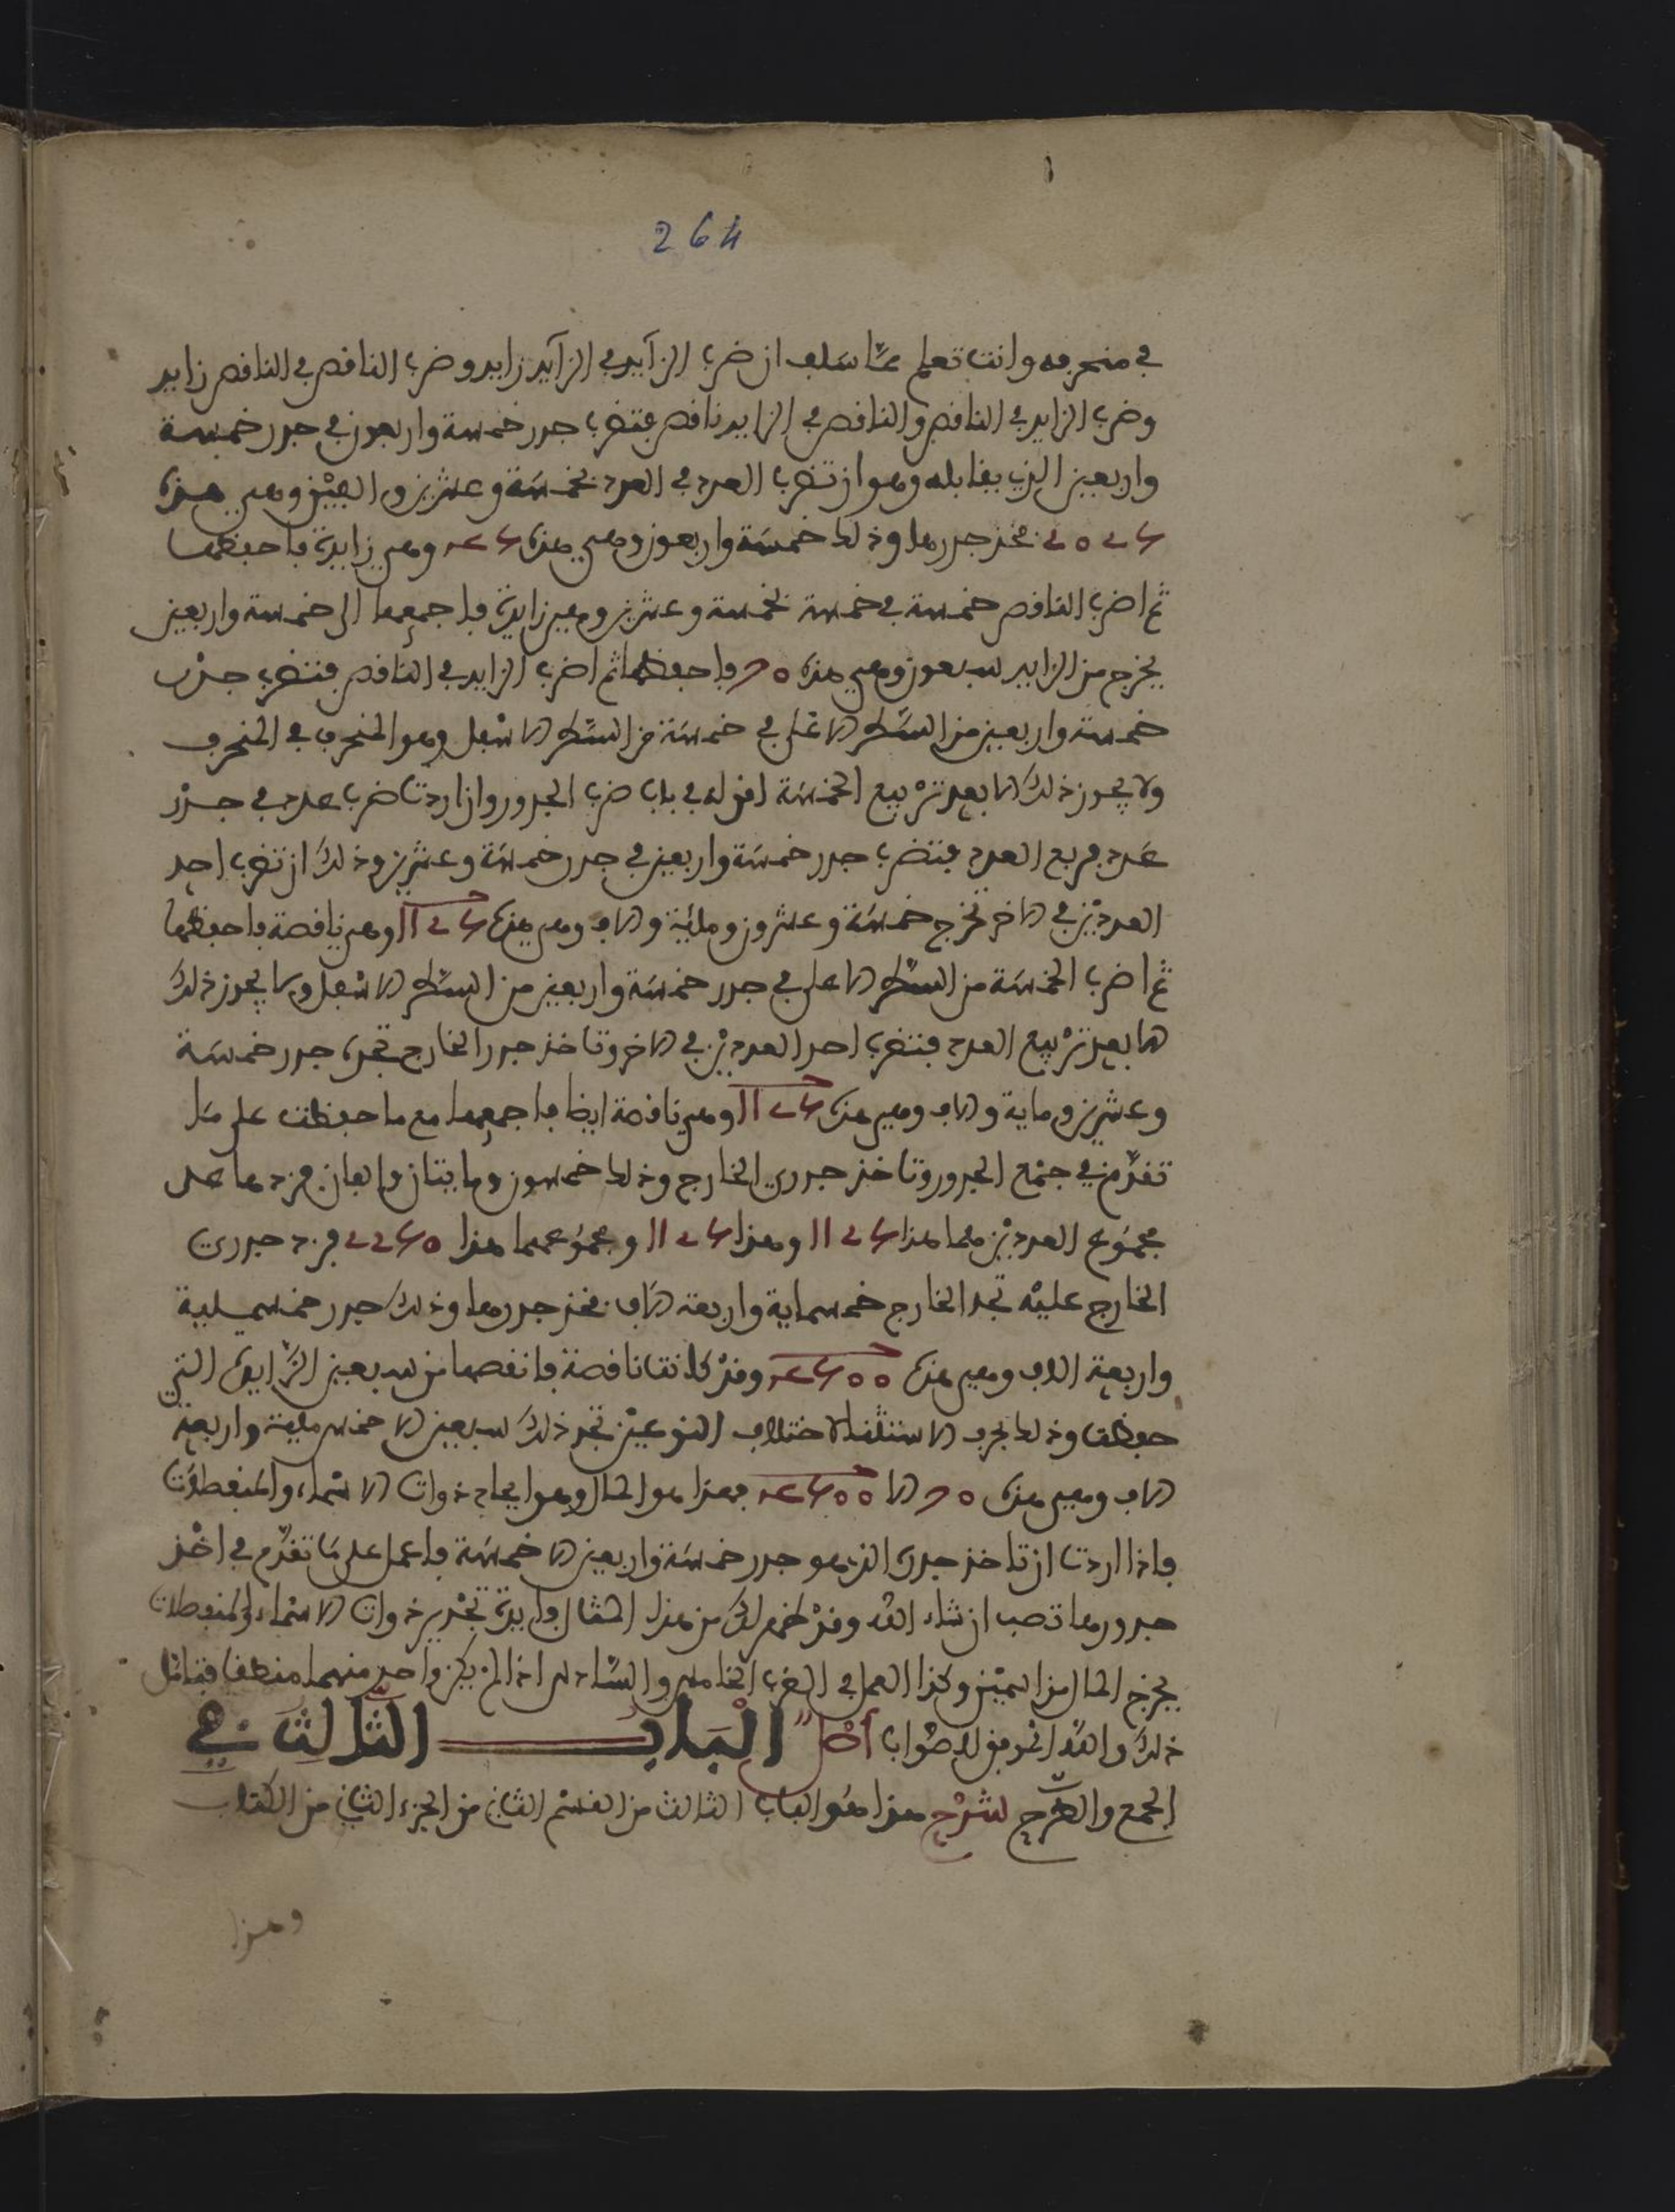 264
في منحرفه وانت تعلم مما سلف ان ضرب الزايد في الزايد زايد وضرب الناقص في الناقص زايد
وضرب الزايد في الناقص والناقص في الزايد ناقص فتضرب جدر خمسة واربعون في جدر خمسة
واربعين الذي يقابله وهو ان تضرب العدد في العدد بخمسة وعشرين والفين وهي هذه
2025 فخذ جدرها وذلك خمسة واربعون وهي هذه 45 وهي زايدة فاحفظها
ثم اضرب الناقص خمسة في خمسة بخمسة وعشرين وهي زايدة فاجمعها الى خمسة واربعين
يخرج من الزايد سبعون وهي هذه 70 فاحفظها ثم اضرب الزايد في الناقص فتضرب جذر
خمسة واربعين من السطر الاعلى في خمسة من السطر الاسفل وهو المنحرف في المنحرف
ولا يجوز ذلك الا بعد تربيع الخمسة لقوله في باب ضرب الجدور وان اردت ضرب عدد في جدر
عدد فربع العدد فتضرب جدر خمسة واربعين في جدر خمسة وعشرين وذلك ان تضرب احد
العددين في الاخر تخرج خمسة وعشرون ومائة والف وهي هذه 1125 وهي ناقصة فاحفظها
ثم اضرب الخمسة من السطر الاعلى في جدر خمسة واربعين من السطر الاسفل ولا يجوز ذلك
الا بعد تربيع العدد فتضرب احد العددين في الاخر وتاخذ جدر الخارج تجده جدر خمسة
وعشرين وماية والف وهي هذه 1125 وهي ناقصة ايضا فاجمعها مع ما حفظت على ما
تقدم في جمع الجدور وتاخذ جدري الخارج وذلك خمسون ومايتان والفان فزدها على
مجموع العددين هما هذا 1125 وهذا 1125 ومجموعهما هذا 2250 فزد جدري
الخارج عليه تجد الخارج خمسماية واربعة الاف فخذ جدرها وذلك جدر خمسماية
واربعة الاف وهي هذه 4500 وقد كانت ناقصة فانقصها من سبعين الزايدة التي
حفظت وذلك بحرف الاستثنا لاختلاف النوعين تجد ذلك سبعين الا خمس ماية واربعة
الاف وهي هذه 70 الا 4500 فهذا هو المال وهو ايجاد ذوات الاسماء والمنفصلات
فاذا اردت ان تاخذ جدره الذي هو جدر خمسة واربعين الا خمسة فاعمل على ما تقدم في اخذ
جدورها تصب ان شاء الله وقد ظهر لك من هذا المثال فايدة تجدير ذوات الاسماء والمنفصلات
يخرج المال من اسمين وكذا العمل في الضرب الخامس والسادس اذا لم يكن واحد منهما منطقا فتامل
ذلك والله الموفق للصواب اصل الباب الثالث في
الجمع والطرح لشرح هذا هو الباب الثالث من القسم الثاني من الجزء الثاني من الكتاب
وهذا